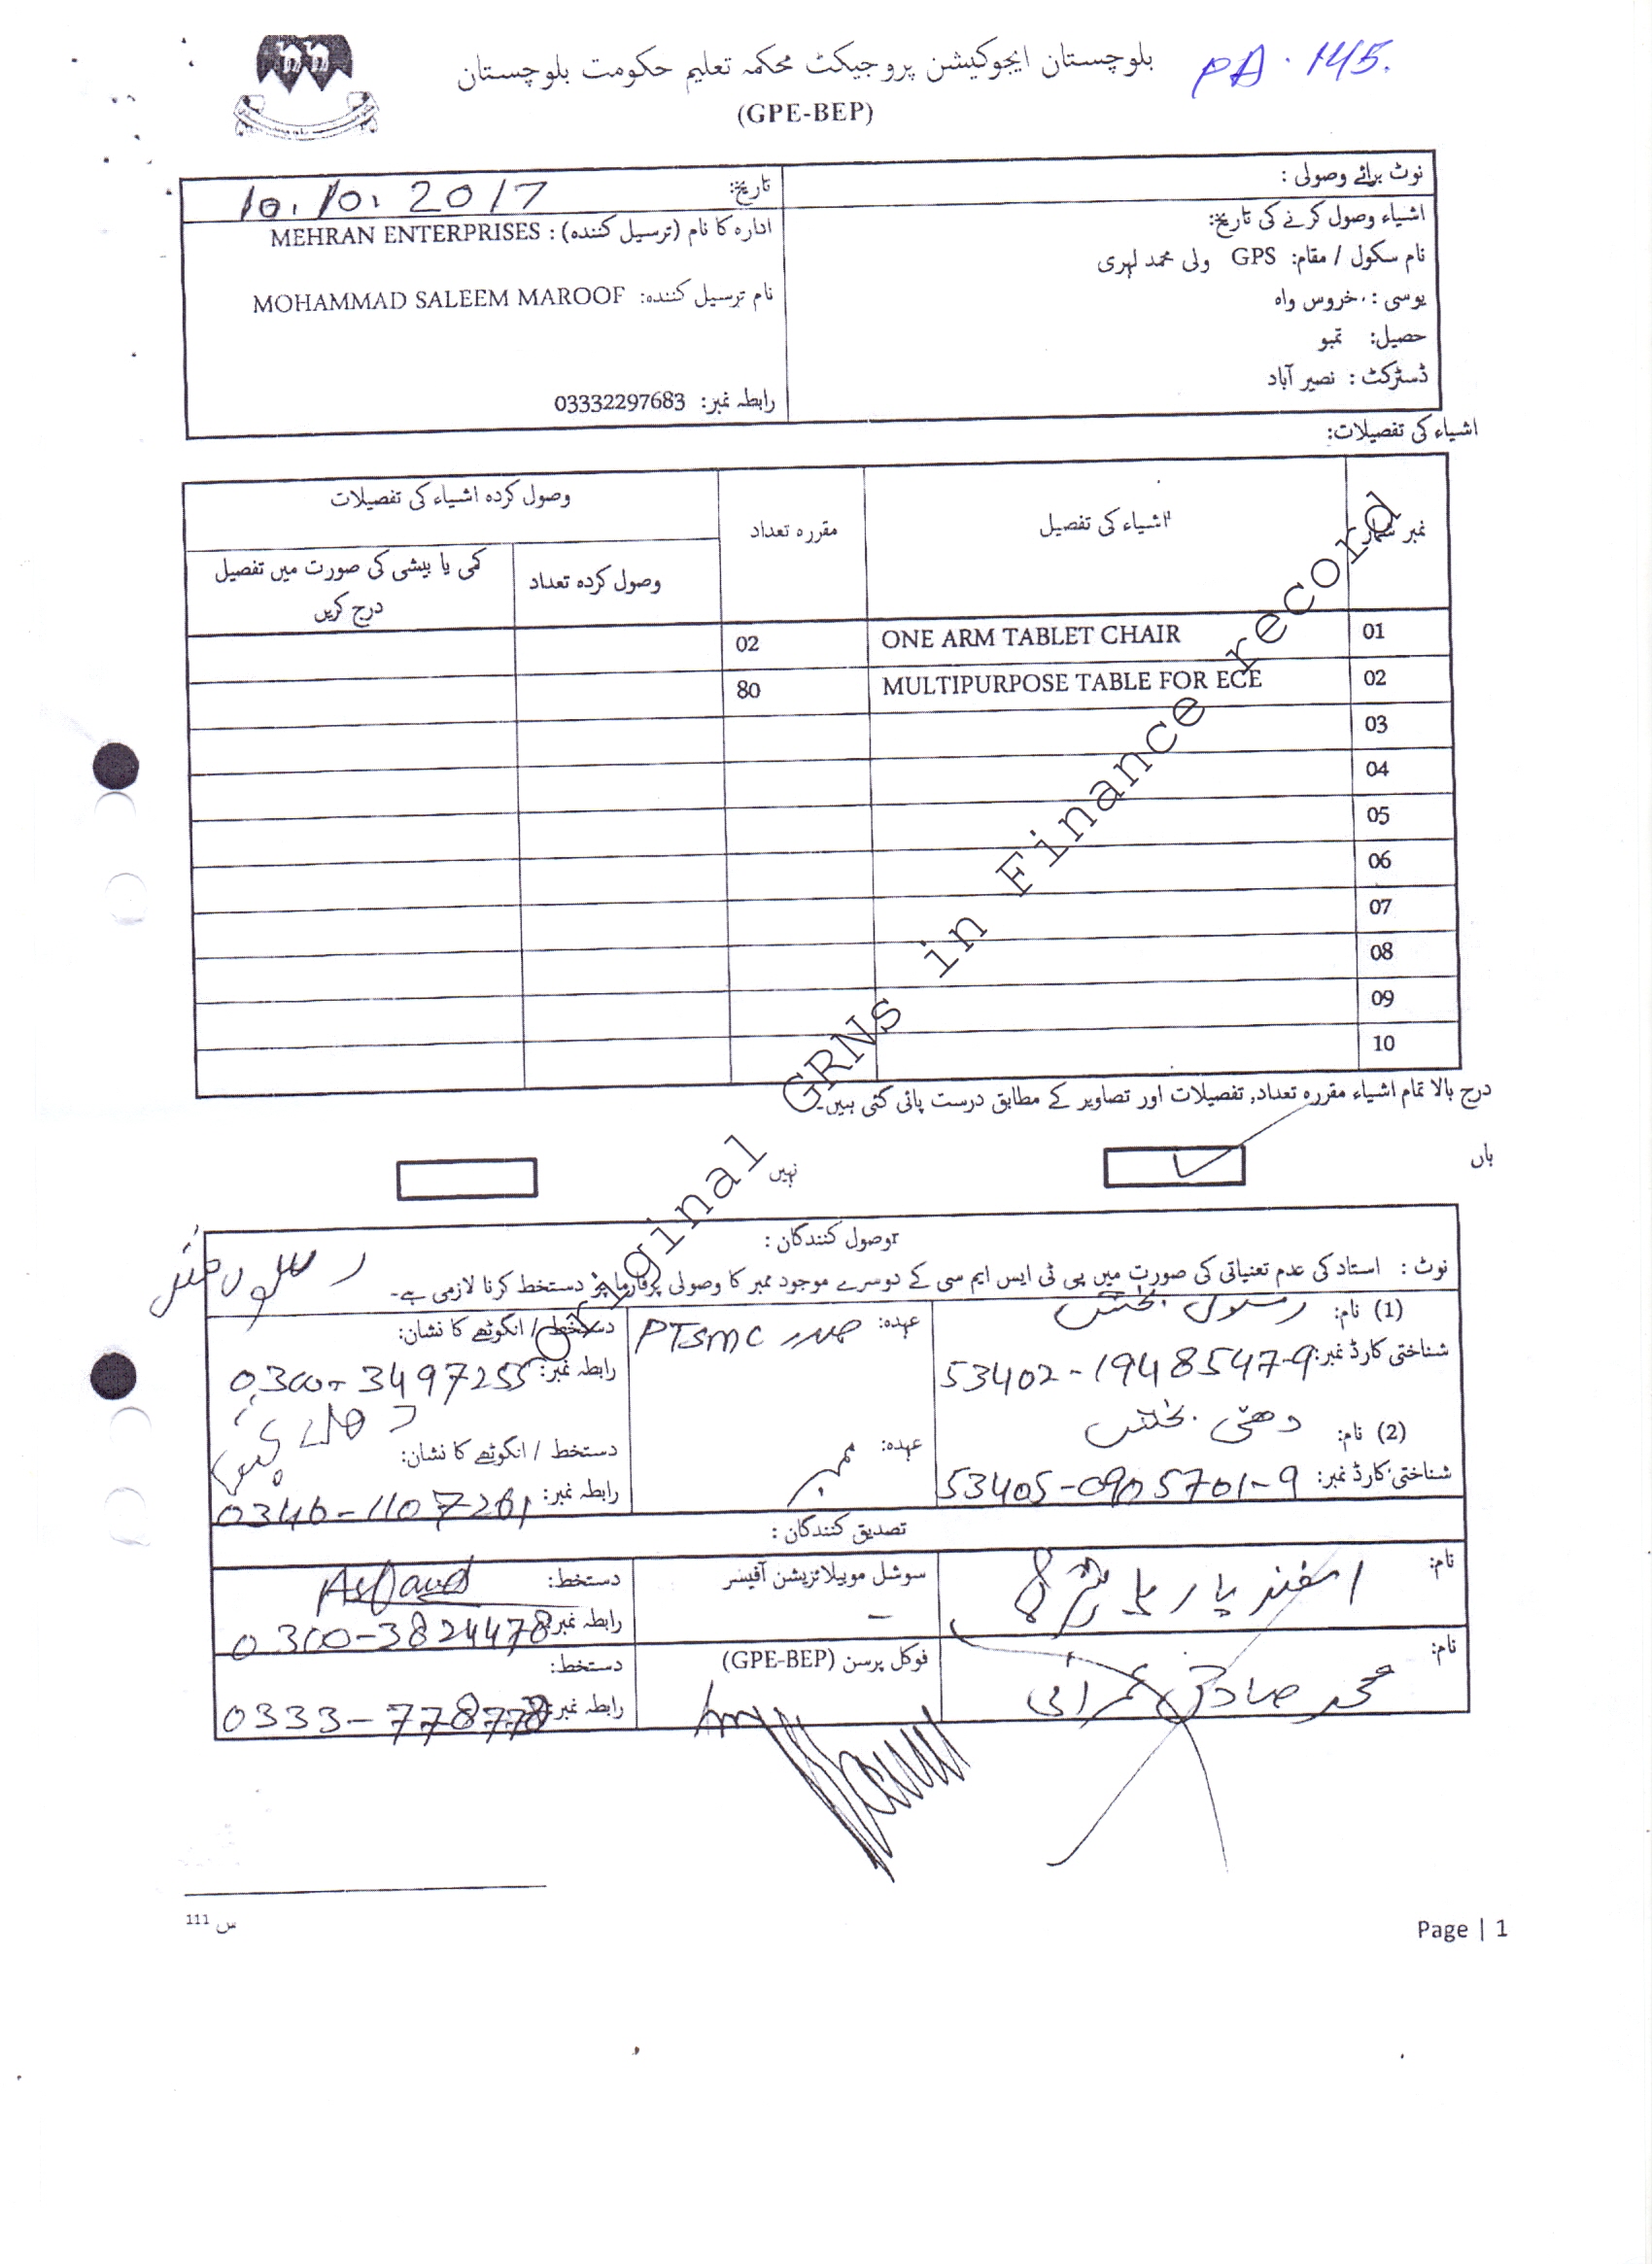 بلوچستان ایجوکیشن پروجیکٹ محکمہ تعلیم حکومت بلوچستان
PA. 145.
(GPE-BEP)
نوٹ برائے وصولی :
تاریخ: 10.10.2017
اشیاء وصول کرنے کی تاریخ:
ادارہ کا نام (ترسیل کنندہ) : MEHRAN ENTERPRISES
نام سکول / مقام: GPS ولی محمد لہری
نام ترسیل کنندہ: MOHAMMAD SALEEM MAROOF
یوسی : خروس واہ
حصیل: تمبو
ڈسٹرکٹ : نصیر آباد
رابطہ نمبر: 03332297683
اشیاء کی تفصیلات:
نمبر شمار
اشیاء کی تفصیل
مقررہ تعداد
وصول کردہ اشیاء کی تفصیلات
وصول کردہ تعداد
کمی یا بیشی کی صورت میں تفصیل
درج کریں
01 ONE ARM TABLET CHAIR 02
02 MULTIPURPOSE TABLE FOR ECE 80
03
04
05
06
07
08
09
10
Original GRNs in Finance record
درج بالا تمام اشیاء مقررہ تعداد, تفصیلات اور تصاویر کے مطابق درست پائی گئی ہیں۔
ہاں
نہیں
وصول کنندگان :
نوٹ : استاد کی عدم تعنیاتی کی صورت میں پی ٹی ایس ایم سی کے دوسرے موجود ممبر کا وصولی پرفارما پر دستخط کرنا لازمی ہے۔
(1) نام: رسول بخش
عہدہ: صدر PTSMC
دستخط / انگوٹھے کا نشان:
شناختی کارڈ نمبر: 53402-1948547-9
رابطہ نمبر: 0300-3497255
(2) نام: دھنی بخش
عہدہ: ممبر
دستخط / انگوٹھے کا نشان:
شناختی کارڈ نمبر: 53405-0905701-9
رابطہ نمبر: 0346-1107261
تصدیق کنندگان :
نام: اسفند یار
سوشل موبیلائزیشن آفیسر
دستخط: Asfand
رابطہ نمبر: 0300-3824478
نام: محمد صادق عمرانی
فوکل پرسن (GPE-BEP)
دستخط:
رابطہ نمبر: 0333-778778
س 111
Page | 1